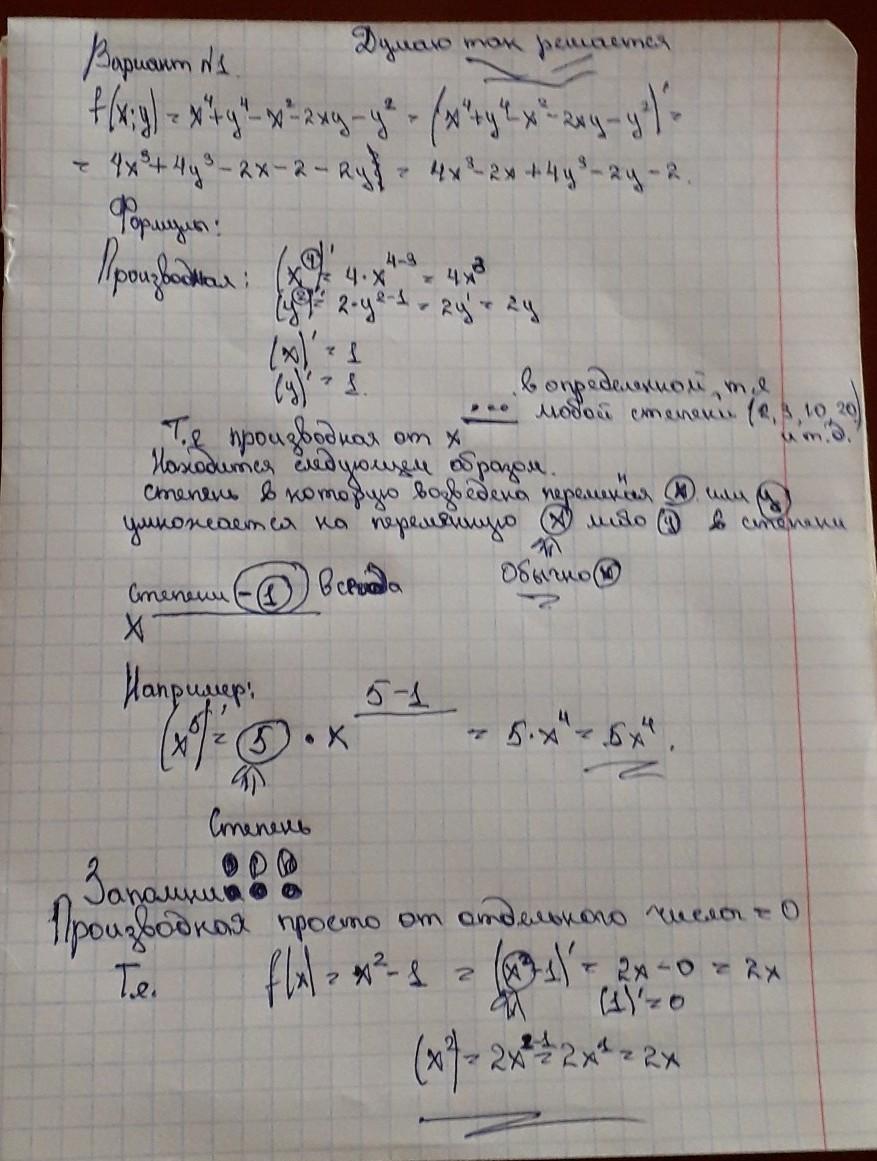 Думаю так решается
Вариант №1.
f(x;y) = x⁴+y⁴−x²−2xy−y² = (x⁴+y⁴−x²−2xy−y²)' =
= 4x³+4y³−2x−2−2y = 4x³−2x+4y³−2y−2.
Формулы:
Производная: (x⁴)' = 4·x⁴⁻³ = 4x³
(y²)' = 2·y²⁻¹ = 2y' = 2y
(x)' = 1
(y)' = 1.
в определенной, т.е
Т.е производная от x ... любой степени (2,3,10,20)
и т.д.
Находится следующем образом.
степень в которую возведена переменая x или y
умножается на переменную x либо y в степени
Обычно x
степени −1 всегда
x
Например:
(x⁵)' = 5 · x⁵⁻¹ = 5·x⁴ = 5x⁴.
Степень
Запомни!!!
Производная просто от отдельного числа = 0
Т.е. f(x) = x²−1 = (x²−1)' = 2x−0 = 2x
(1)'=0
(x²) = 2x²⁻¹ = 2x¹ = 2x